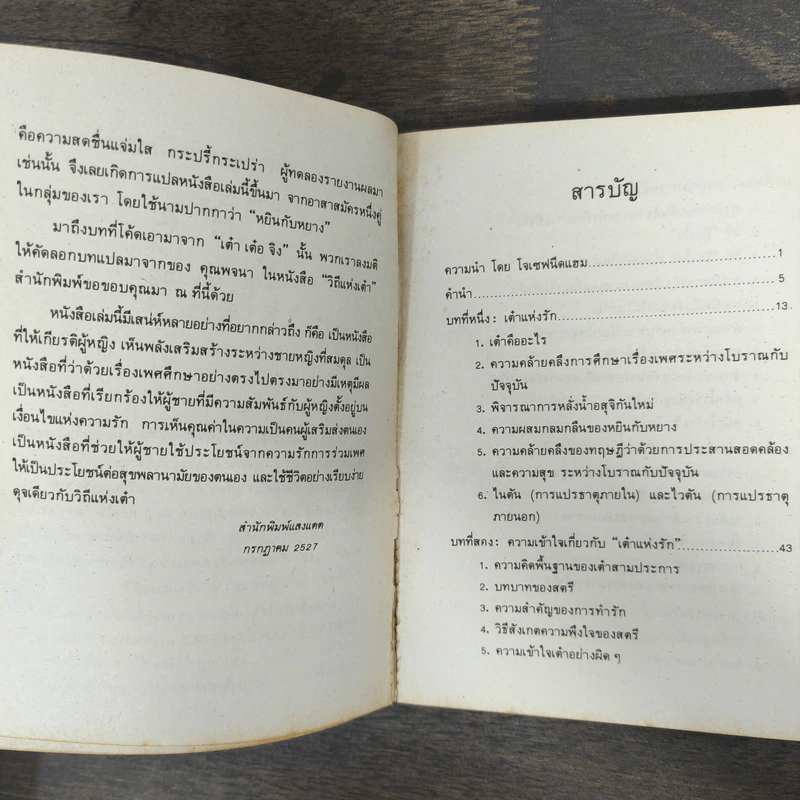 คือความสดชื่นแจ่มใส กระปรี้กระเปร่า ผู้ทดลองรายงานผลมา
เช่นนั้น จึงเลยเกิดการแปลหนังสือเล่มนี้ขึ้นมา จากอาสาสมัครหนึ่งคู่
ในกลุ่มของเรา โดยใช้นามปากกาว่า “หยินกับหยาง”
มาถึงบทที่โค้ดเอามาจาก “เต๋า เต๋อ จิง” นั้น พวกเราลงมติ
ให้คัดลอกบทแปลมาจากของ คุณพจนา ในหนังสือ “วิถีแห่งเต๋า”
สำนักพิมพ์ขอขอบคุณมา ณ ที่นี้ด้วย
หนังสือเล่มนี้มีเสน่ห์หลายอย่างที่อยากกล่าวถึง ก็คือ เป็นหนังสือ
ที่ให้เกียรติผู้หญิง เห็นพลังเสริมสร้างระหว่างชายหญิงที่สมดุล เป็น
หนังสือที่ว่าด้วยเรื่องเพศศึกษาอย่างตรงไปตรงมาอย่างมีเหตุมีผล
เป็นหนังสือที่เรียกร้องให้ผู้ชายที่มีความสัมพันธ์กับผู้หญิงตั้งอยู่บน
เงื่อนไขแห่งความรัก การเห็นคุณค่าในความเป็นคนผู้เสริมส่งตนเอง
เป็นหนังสือที่ช่วยให้ผู้ชายใช้ประโยชน์จากความรักการร่วมเพศ
ให้เป็นประโยชน์ต่อสุขพลานามัยของตนเอง และใช้ชีวิตอย่างเรียบง่าย
ดุจเดียวกับวิถีแห่งเต๋า
สำนักพิมพ์แสงแดด
กรกฎาคม 2527
สารบัญ
ความนำ โดย โจเซฟนีดแฮม........................................1
คำนำ............................................................5
บทที่หนึ่ง: เต๋าแห่งรัก........................................13
1. เต๋าคืออะไร
2. ความคล้ายคลึงการศึกษาเรื่องเพศระหว่างโบราณกับ
ปัจจุบัน
3. พิจารณาการหลั่งน้ำอสุจิกันใหม่
4. ความผสมกลมกลืนของหยินกับหยาง
5. ความคล้ายคลึงของทฤษฎีว่าด้วยการประสานสอดคล้อง
และความสุข ระหว่างโบราณกับปัจจุบัน
6. ไนตัน (การแปรธาตุภายใน) และไวตัน (การแปรธาตุ
ภายนอก)
บทที่สอง: ความเข้าใจเกี่ยวกับ “เต๋าแห่งรัก”....................43
1. ความคิดพื้นฐานของเต๋าสามประการ
2. บทบาทของสตรี
3. ความสำคัญของการทำรัก
4. วิธีสังเกตความพึงใจของสตรี
5. ความเข้าใจเต๋าอย่างผิด ๆ